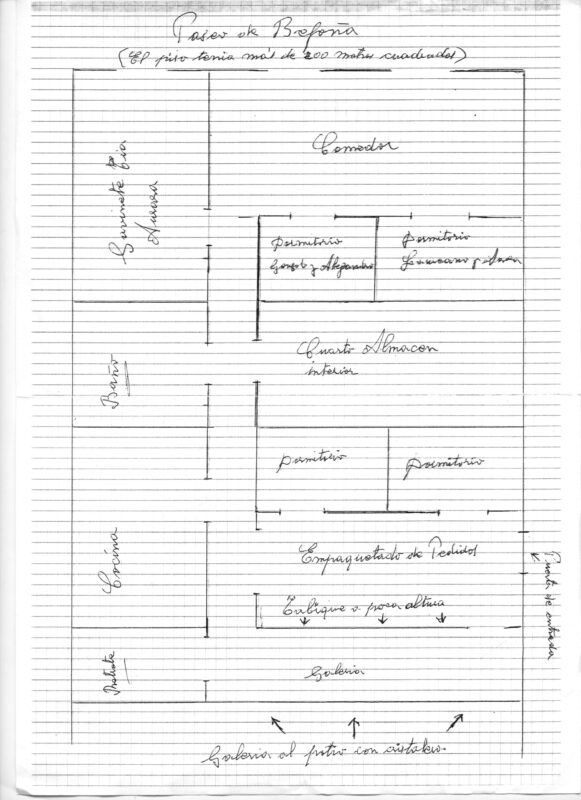 Paseo de Begoña
(El piso tenia más de 200 metros cuadrados)
Comedor
Gavinete tia
Aurora
Dormitorio
Gonzalo y Alejandro
Dormitorio
y
Cuarto Almacen
interior
Baño
Dormitorio
Dormitorio
Cocina
Empaquetado de Pedidos
Puerta de entrada
Tabique a poca altura
Retrete
Galeria
Galeria al patio con cristales